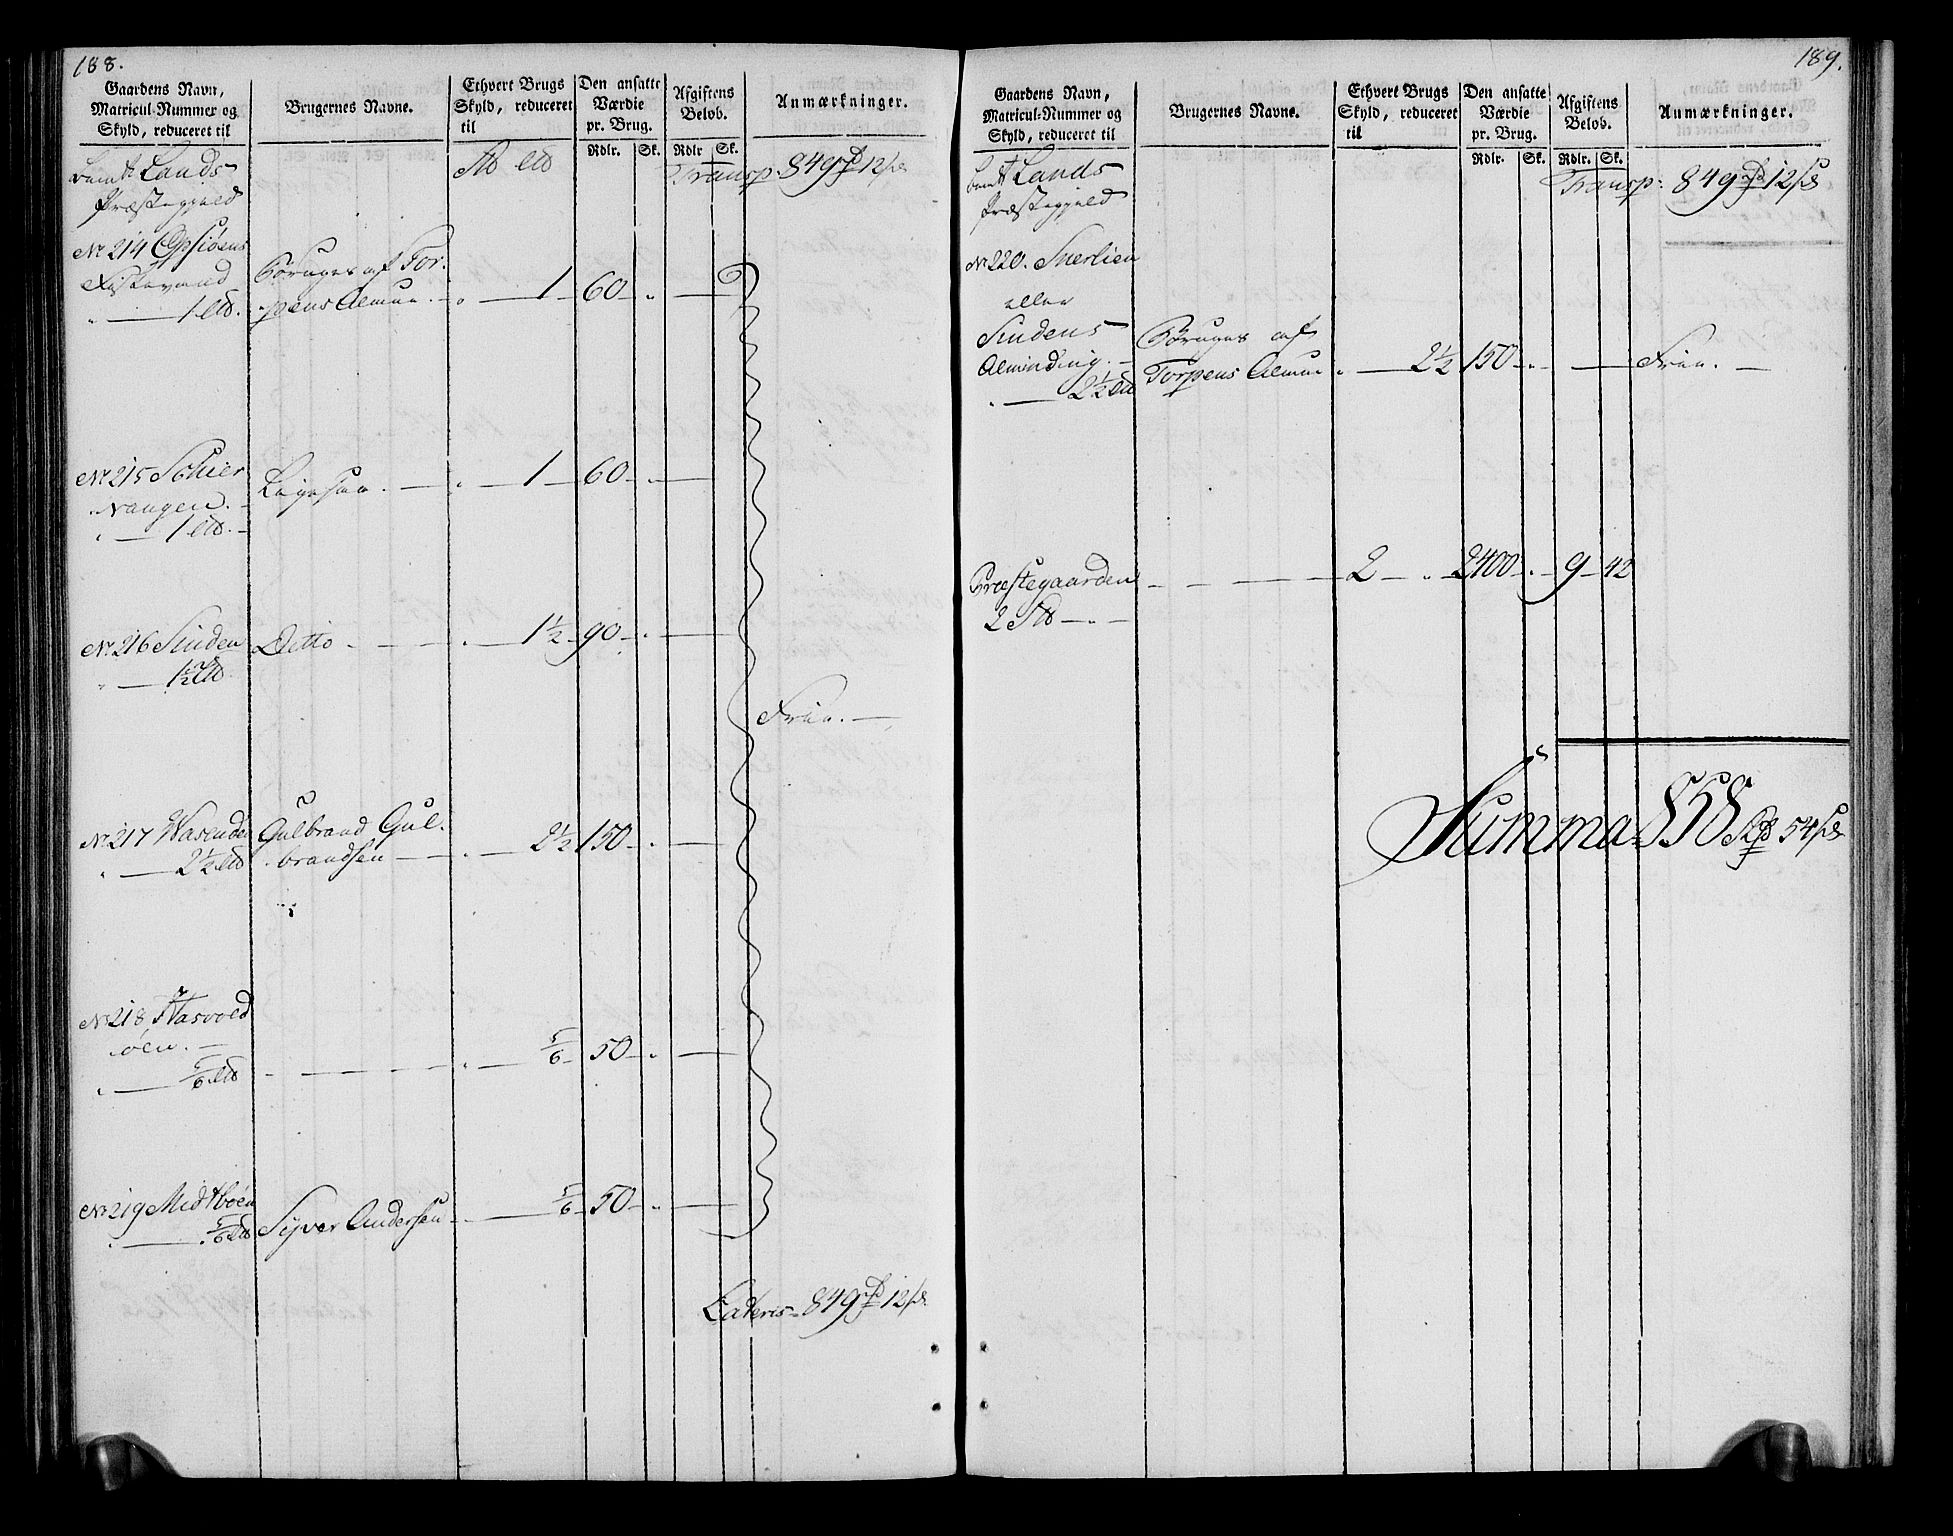 188.
Gaardens Navn,
Matricul-Nummer og
Skyld, reduceret til
Brugernes Navne.
Ethvert Brugs
Skyld, reduceret
til
Den ansatte
Værdie
pr. Brug.
Rdlr. Sk.
Afgiftens
Beløb.
Rdlr Sk.
Anmærkninger.
Lands
Præstegjeld
Transp: 849 12
No 214 Opsiøens
Fiskevand
1
Bruges af Tor-
pens Almue. 1 60
No 215 Schier
vangen.
1
Ligesaa. 1 60
No 216 Sinden
1½
Ditto 1½ 90
Friee.
No 217 Wasenden
2½
Gulbrand Gul-
brandsen 2½ 150
No 218 Aasvold
øen.
5/6
5/6 50
No 219 Midtbøen
5/6
Syver Andersen 5/6 50
Lateris 849 12
189.
Gaardens Navn,
Matricul-Nummer og
Skyld, reduceret til
Brugernes Navne.
Ethvert Brugs
Skyld, reduceret
til
Den ansatte
Værdie
pr. Brug.
Rdlr. Sk.
Afgiftens
Beløb.
Rdlr. Sk.
Anmærkninger.
Lands
Præstegjeld
Transp: 849 12
No 220. Snerlien
eller
Sindens
Alminding.
2½
Bruges af
Torpens Almue 2½ 150 Friee.
Præstegaarden 2 2400 9 42
2
Summa 858 54